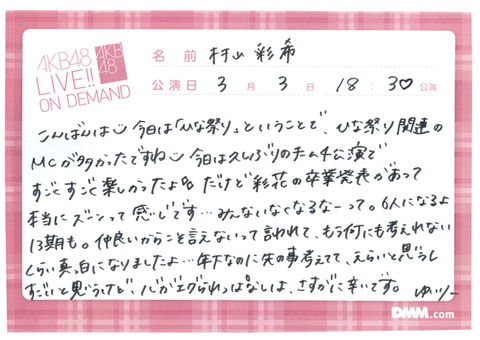 AKB48
LIVE!!
ON DEMAND
AKB
48
名前 村山彩希
公演日 3月3日 18:30公演
こんばんは 今日は「ひな祭り」ということで、ひな祭り関連の
MCが多かったですね 今日は久しぶりのチーム4公演で
すごくすごく楽しかったよ だけど彩花の卒業発表があって
本当にズーンって感じです…みんないなくなるなーって。6人になるよ
13期も。仲良いからこと言えないって言われて、もう何にも考えれない
くらい真っ白になりましたよ…年下なのに先の事考えてて、えらいと思うし
すごいと思うけど、心がエグられっぱなしは、さすがに辛いです。ゆいりー
DMM.com